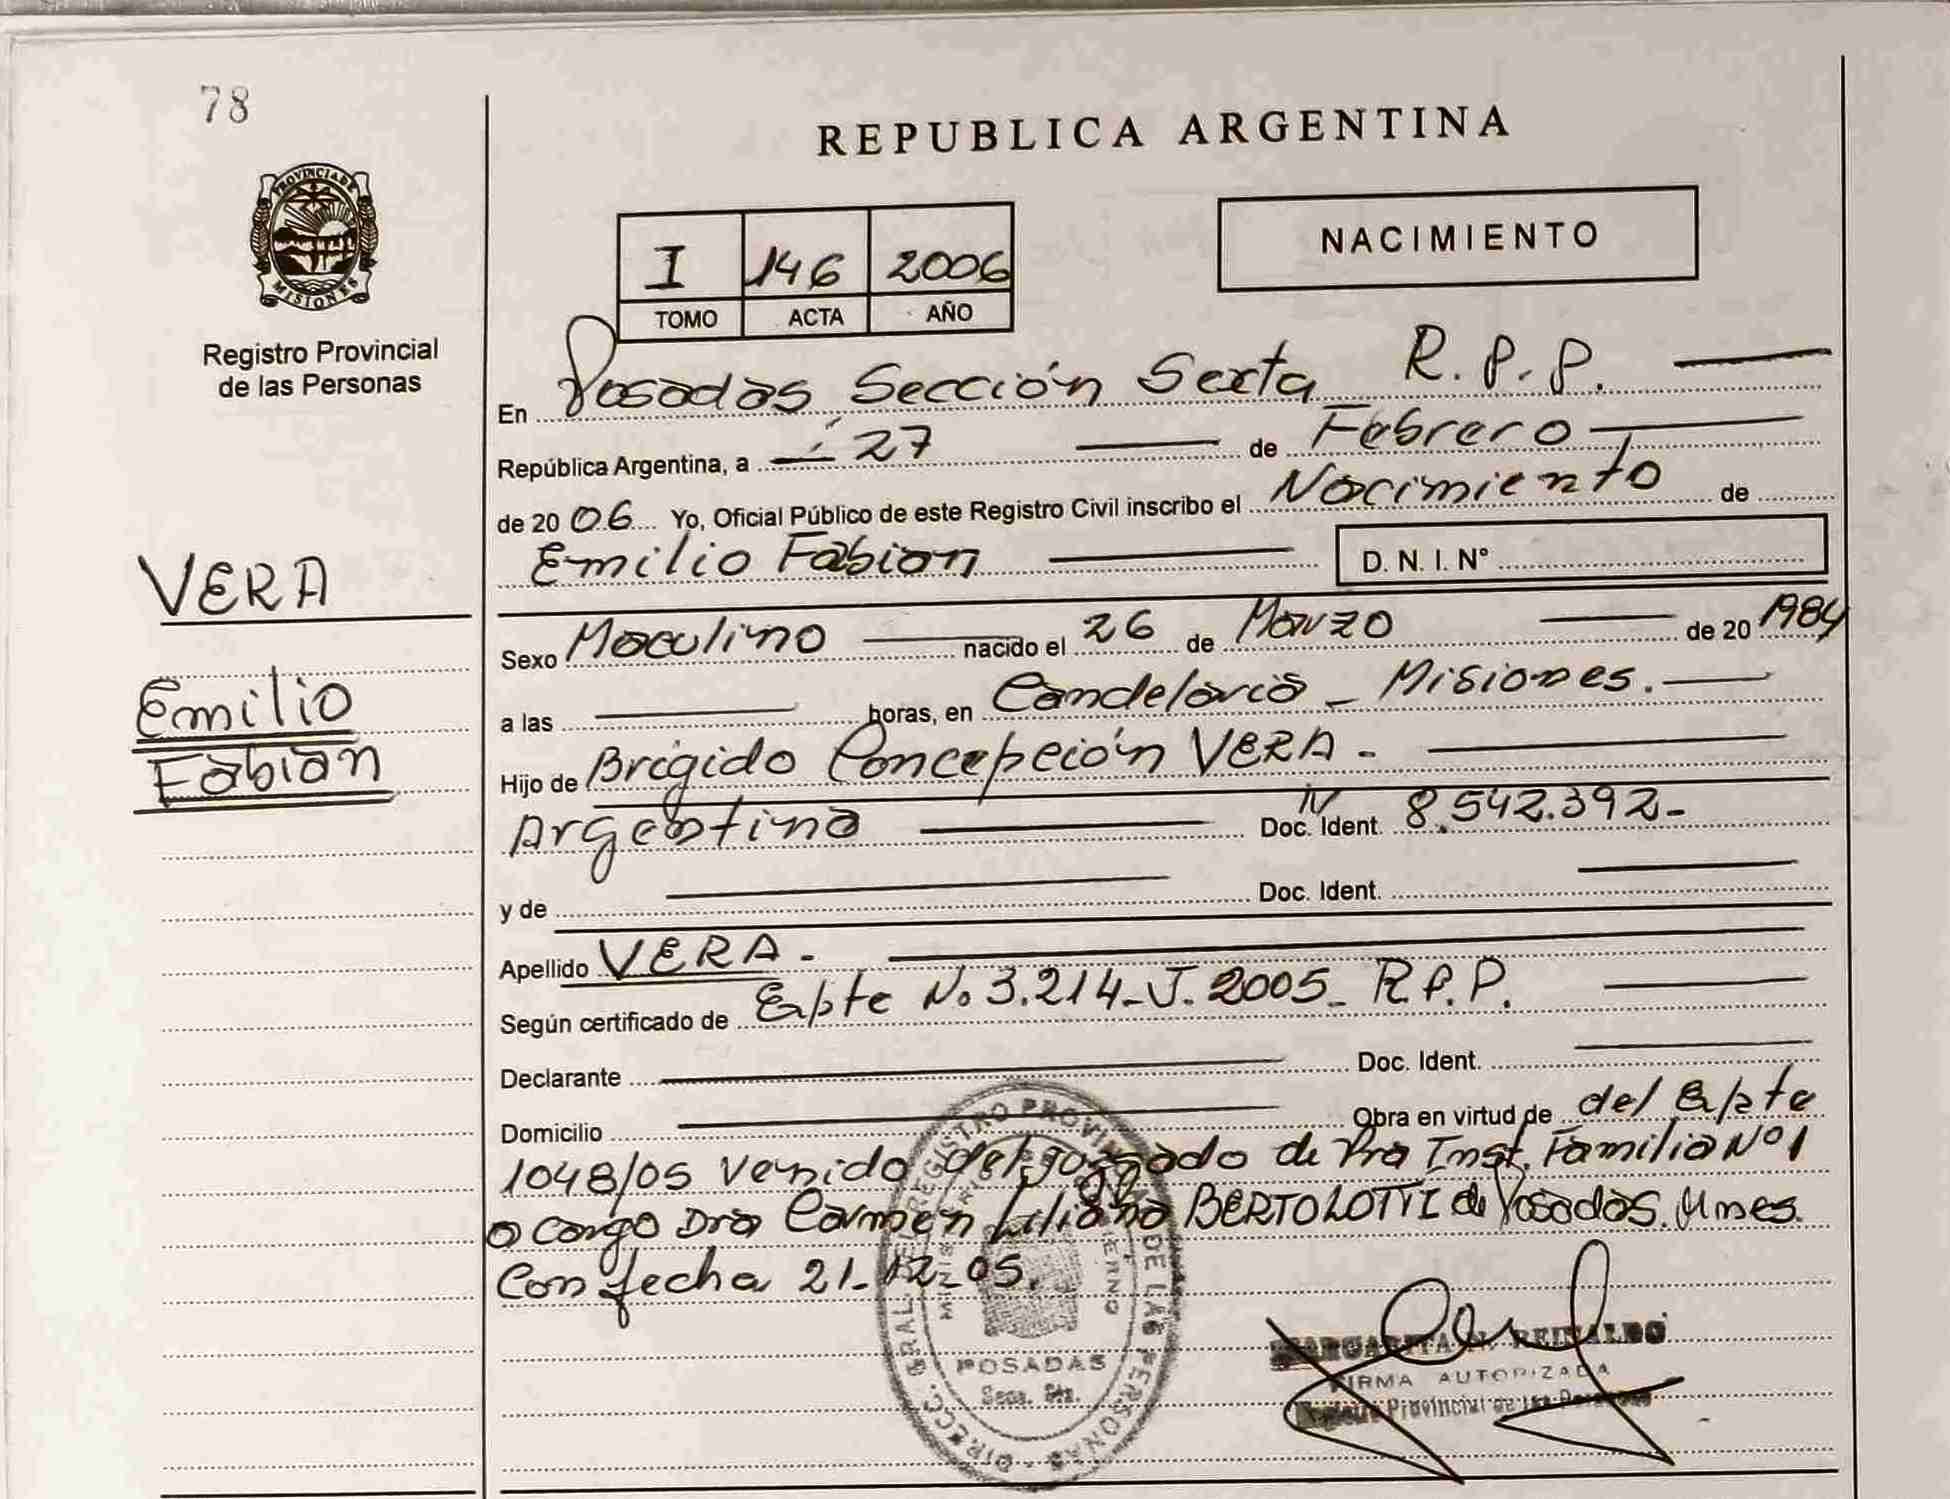 78
REPUBLICA ARGENTINA
PROVINCIA DE
MISIONES
Registro Provincial
de las Personas
I 146 2006
TOMO ACTA AÑO
NACIMIENTO
En Posadas Sección Sexta R.P.P.
República Argentina, a 27 de Febrero
de 2006 Yo, Oficial Público de este Registro Civil inscribo el Nacimiento de
Emilio Fabian D. N. I. N°
VERA
Emilio
Fabian
Sexo Masculino nacido el 26 de Marzo de 20 1984
a las horas, en Candelaria - Misiones.
Hijo de Brígido Concepción VERA -
Argentina Doc. Ident. 8.542.392-
y de Doc. Ident.
Apellido VERA -
Según certificado de Expte No 3.214-J. 2005- R.P.P.
Declarante Doc. Ident.
Domicilio Obra en virtud de del Expte
1048/05 venido del Juzgado de Pra Inst. Familia Nº 1
a cargo Dra Carmen Liliana BERTOLOTTI de Posadas. Mnes.
Con fecha 21-12-05.
DIRECC. GRAL. DEL REGISTRO PROVINCIAL DE LAS PERSONAS
POSADAS
Secc. 6ta.
MARGARITA N. REINALDO
FIRMA AUTORIZADA
Registro Provincial de las Personas